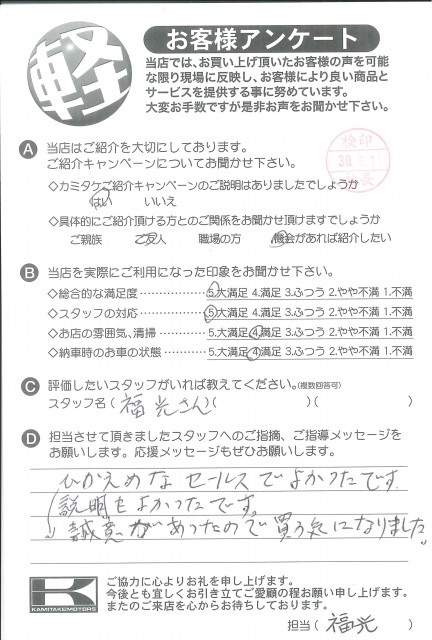 軽
お客様アンケート
当店では、お買い上げ頂いたお客様の声を可能
な限り現場に反映し、お客様により良い商品と
サービスを提供する事に努めています。
大変お手数ですが是非お声をお聞かせ下さい。
A 当店はご紹介を大切にしております。
ご紹介キャンペーンについてお聞かせ下さい。
検印
30.5.1
長
◇カミタケご紹介キャンペーンのご説明はありましたでしょうか
はい いいえ
◇具体的にご紹介頂ける方とのご関係をお聞かせ頂けますでしょうか
ご親族 ご友人 職場の方 機会があれば紹介したい
B 当店を実際にご利用になった印象をお聞かせ下さい。
◇総合的な満足度 5.大満足 4.満足 3.ふつう 2.やや不満 1.不満
◇スタッフの対応 5.大満足 4.満足 3.ふつう 2.やや不満 1.不満
◇お店の雰囲気、清掃 5.大満足 4.満足 3.ふつう 2.やや不満 1.不満
◇納車時のお車の状態 5.大満足 4.満足 3.ふつう 2.やや不満 1.不満
C 評価したいスタッフがいれば教えてください。(複数回答可)
スタッフ名(福光さん)( )( )
D 担当させて頂きましたスタッフへのご指摘、ご指導メッセージを
お願いします。応援メッセージもぜひお願いします。
ひかえめなセールスでよかったです.
説明もよかったです。
誠意があったので買う気になりました。
K
KAMITAKEMOTORS
ご協力に心よりお礼を申し上げます。
今後とも宜しくお引き立てご愛顧の程お願い申し上げます。
またのご来店を心からお待ちしております。
担当(福光)